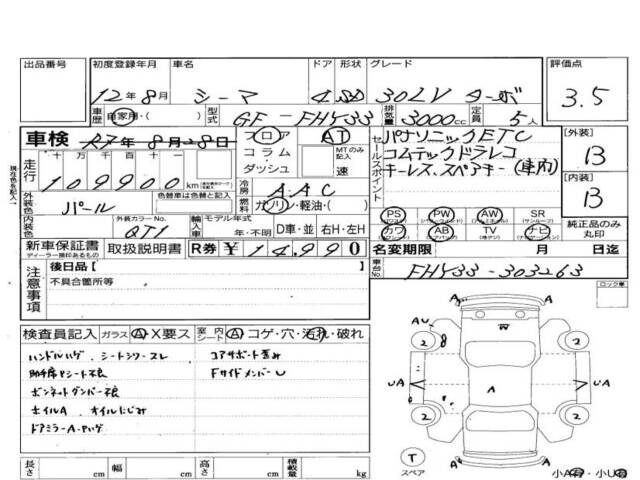 出品番号 初度登録年月 車名 ドア 形状 グレード 評価点
12年8月 シーマ 4 SD 30LV ターボ 3.5
車歴 自家用・( ) 型式 GF-FHY33 排気量 3000cc 定員 5人
車検 R7年8月28日 フロア AT パナソニックETC 【外装】
コラム・ MTのみ記入 コムテックドラレコ B
走行 十 万 千 百 十 一 ダッシュ 速 キーレス、スペアキー(車内)
109900km セールスポイント 【内装】
現在色を記入 冷房 AAC B
外装色 パール 色替車は色替と記入 燃料 ガソリン・軽油・( )
PS PW AW SR 純正品のみ丸印
内装色 外装カラーNo. QT1 輸入車 モデル年式 年・不明 D車・並 右H・左H カワ AB TV ナビ
新車保証書 取扱説明書 R券 ¥14,990 名変期限 月 日迄
ディーラー捺印あるもの
車台No. FHY33-303263
注意事項 後日品【 】
不具合箇所等
ロック車
検査員記入 ガラス A・X要ス 室内シート A コゲ・穴・汚れ・破れ
ハンドルハゲ シートシワ・スレ コアサポート歪み
助手席Pシート不良 Fサイドメンバー U
ボンネットダンパー不良
ホイルA オイルにじみ
ドアミラーA・ハゲ
AU A
2 W 2
UA A UA
2 2
T スペア A A
長さ cm 幅 cm 高さ cm 積載量 kg 小A有・小U有